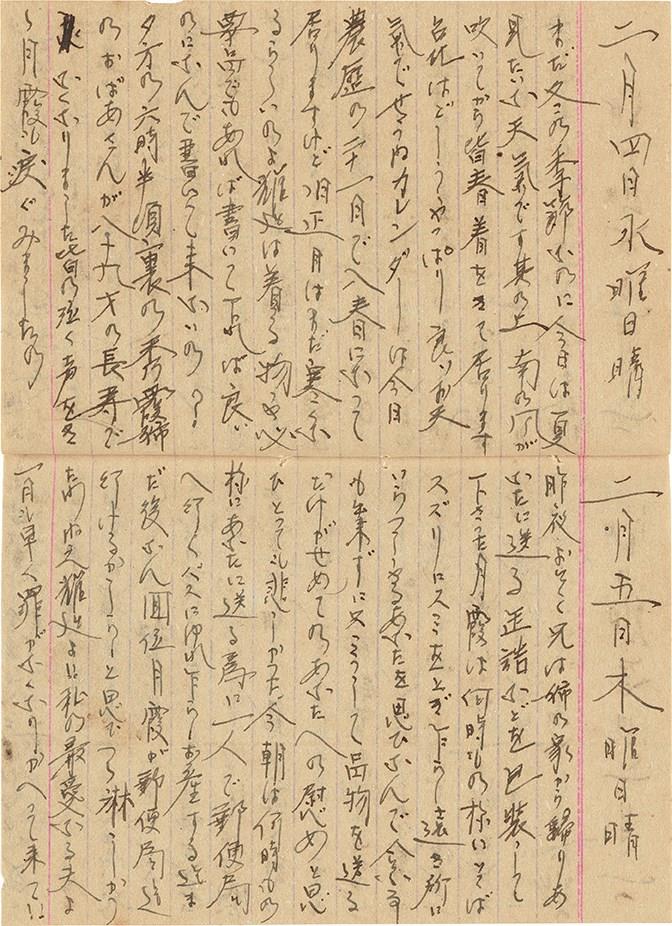 二月四日水曜日晴
まだ冬の季節なのに今日は夏
見たいな天氣です其の上南の風が
吹いてから皆春着をきて居ります
台北はどうでせうやっぱり良いお天
氣でせうねカレンダーは今日
農歴の二十一月で入春になって
居りますけど旧正月はまだ寒くな
るらしいのよ雅廷は着る物も必
要品でもあれば書いて下れば良い
のになんで書いて来ないの?
夕方の六時半頃裏の秀霞姉
のおばあさんが八十九才の長寿で
亡くなりました皆の泣く声をき
き月霞も涙ぐみましたの
二月五日木曜日晴
昨夜おそく兄は姉の家から歸りあ
なたに送る缶詰などを包装して
下さった月霞は何時もの様にそば
スズリにスミをとぎ乍らし遠き所に
いらっしゃるあなたを思ひなんで会ふ事
も来ずに又こうして品物を送る
だけがせめてのあなたへの慰めと思
ひとっても悲しかった今朝は何時もの
様にあなたに送る為に一人で郵便局
へ行くバスにゆれ乍らお産する迄ま
だ後なん回位月霞が郵便局迄
行けるかしらと思ってつら淋しかっ
たのね雅廷よ私の最愛なる夫よ
一日も早く罪がなくなりかへって来て!!